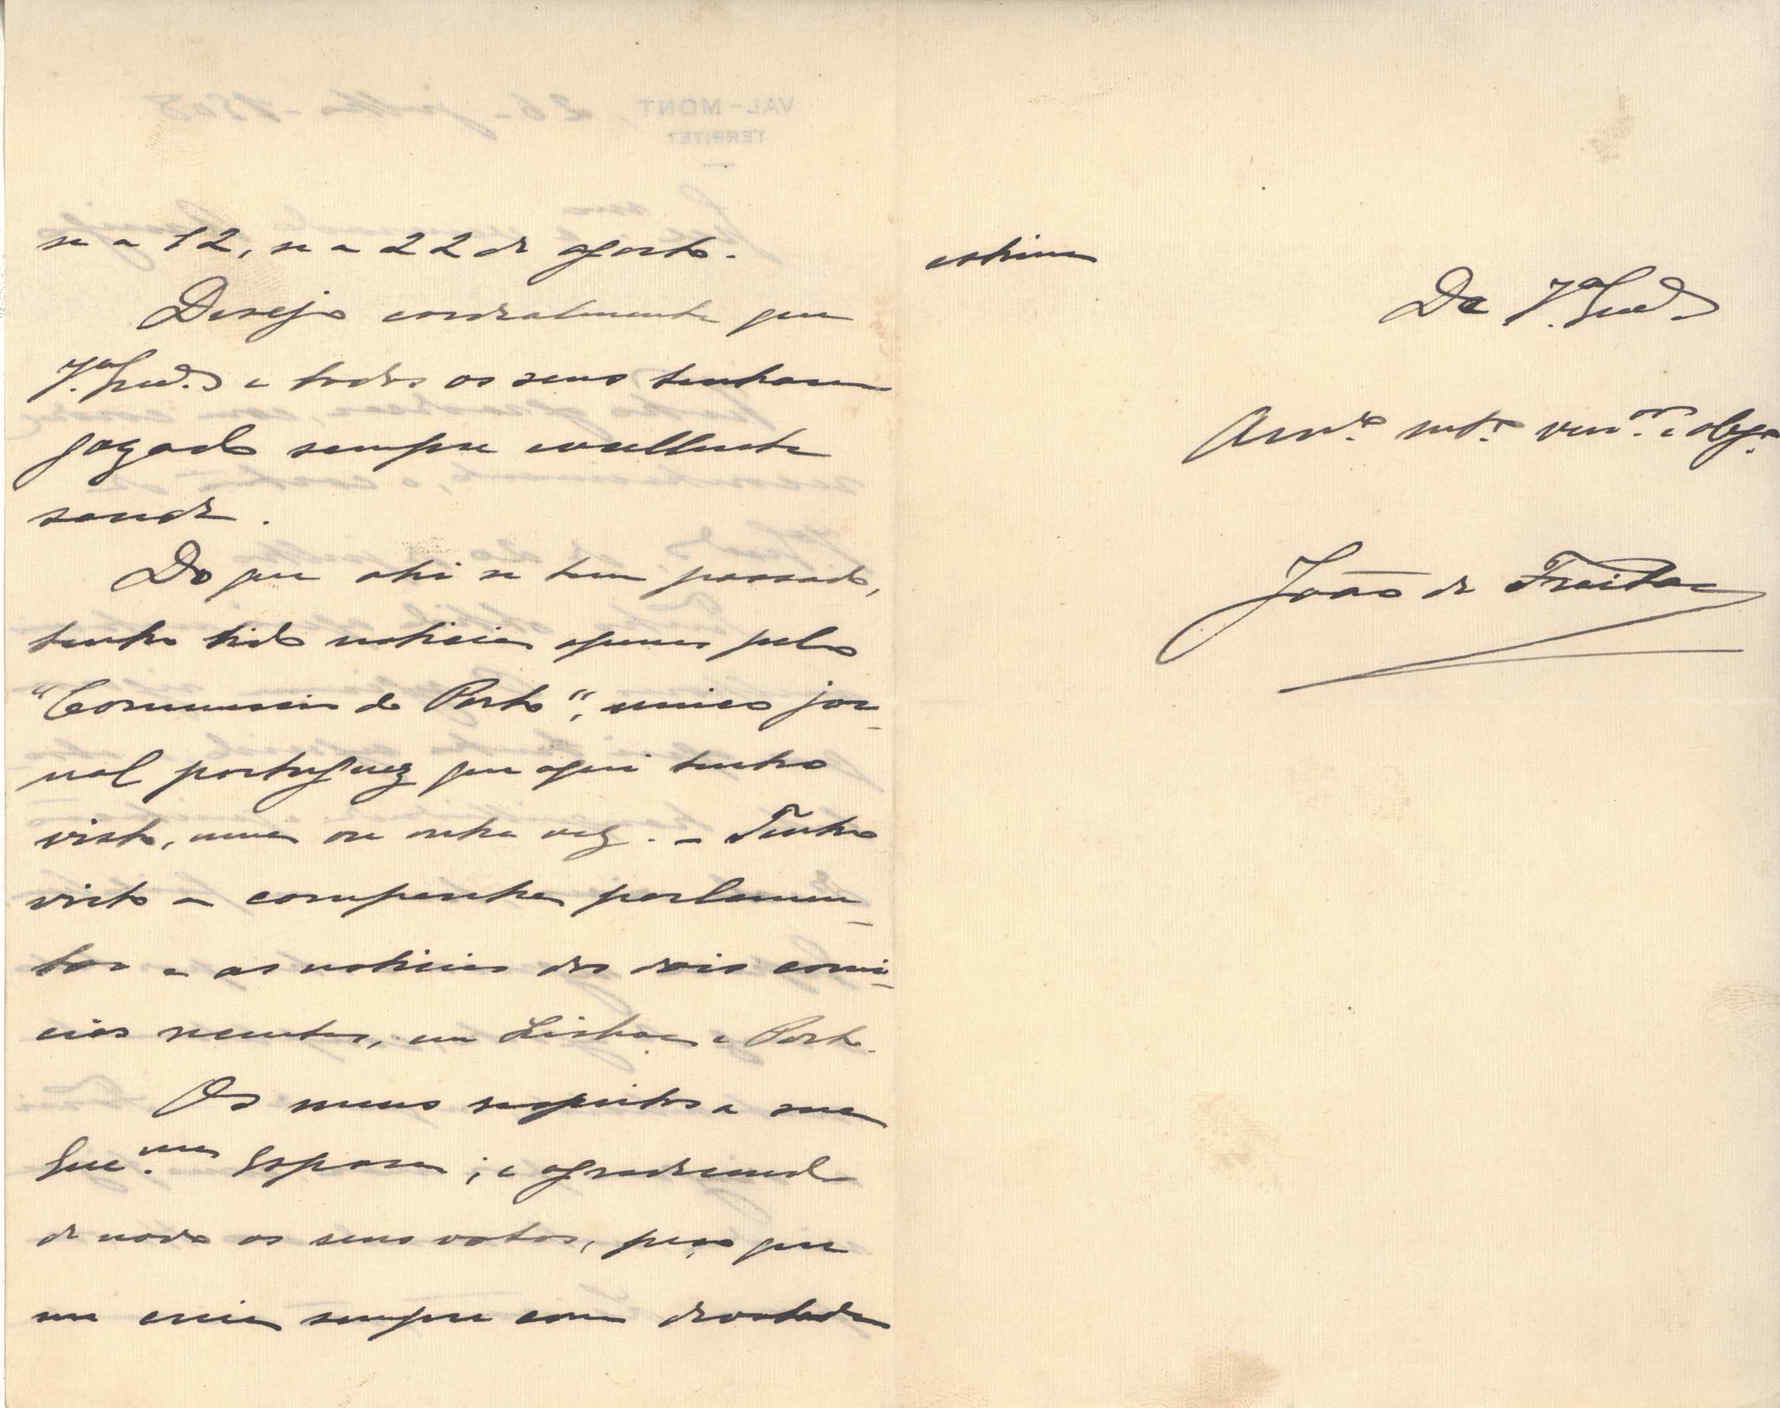 se a 12, se a 22 de agosto.
Desejo cordealmente que
V.ª Ex.ª e todos os seus tenham
gozado sempre excellente
saude.
Do que ahi se tem passado,
tenho tido noticias apenas pelo
"Commercio do Porto", unico jor-
nal portuguez que aqui tenho
visto, uma ou outra vez. – Tenho
visto a campanha parlamen-
tar e as noticias dos dois comi-
cios recentes, em Lisboa e Porto.
Os meus respeitos a sua
Ex.ma Esposa; e agradecendo
de novo os seus votos, peço que
me creia sempre com devotada
estima
De V.ª Ex.ª
Am.º mt.º ven.or e obg.º
João de Freitas
VAL-MONT, 26-julho-1908
TERRITET